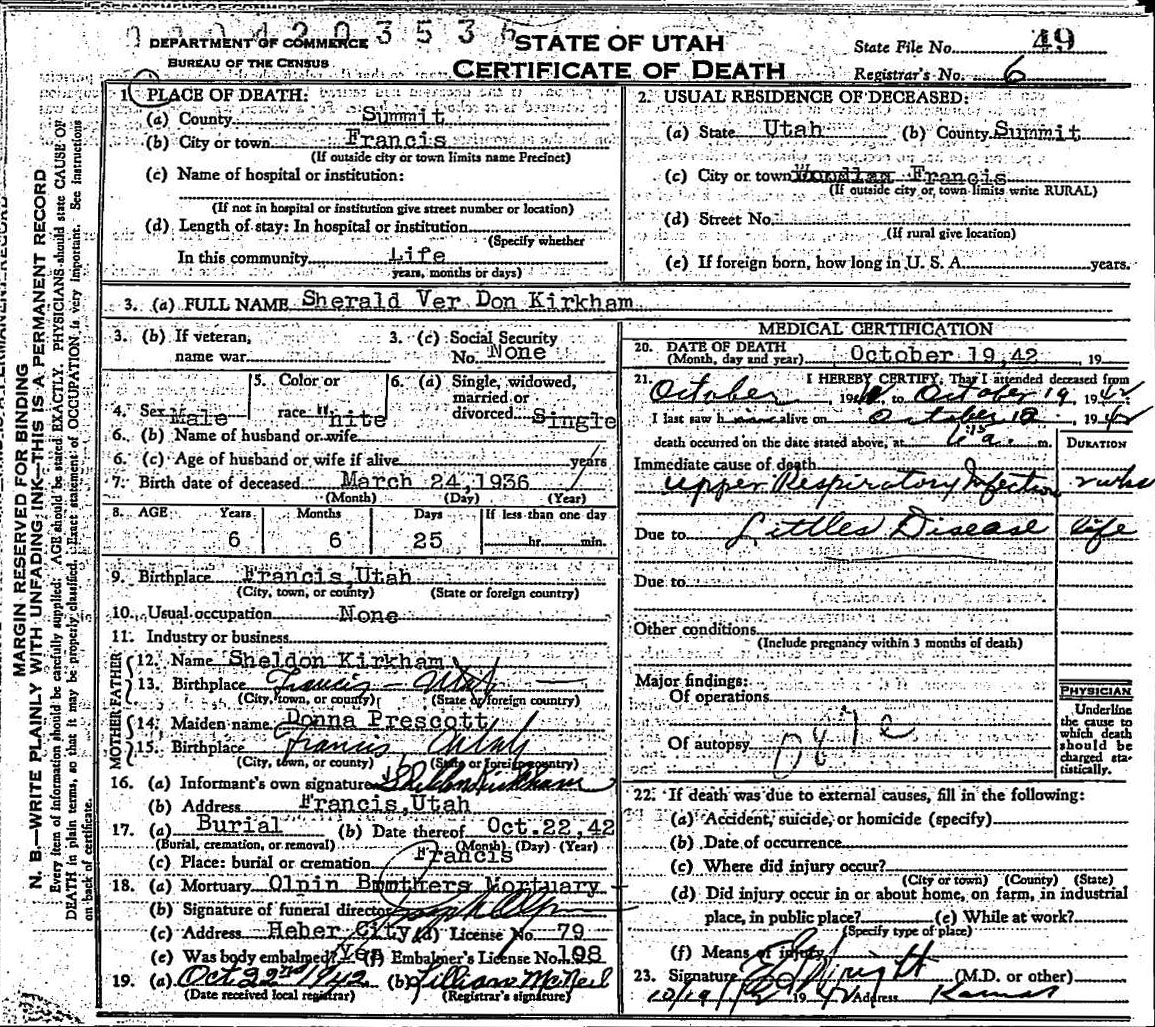 0420353
DEPARTMENT OF COMMERCE
BUREAU OF THE CENSUS
STATE OF UTAH
CERTIFICATE OF DEATH
State File No. 49
Registrar's No. 6
MARGIN RESERVED FOR BINDING
N. B.—WRITE PLAINLY WITH UNFADING INK—THIS IS A PERMANENT RECORD
Every item of information should be carefully supplied. AGE should be stated EXACTLY. PHYSICIANS should state CAUSE OF
DEATH in plain terms, so that it may be properly classified. Exact statement of OCCUPATION is very important. See instructions
on back of certificate.
1. PLACE OF DEATH:
(a) County Summit
(b) City or town Francis
(If outside city or town limits name Precinct)
(c) Name of hospital or institution:
(If not in hospital or institution give street number or location)
(d) Length of stay: In hospital or institution
(Specify whether
In this community Life
years, months or days)
2. USUAL RESIDENCE OF DECEASED:
(a) State Utah (b) County Summit
(c) City or town Francis
(If outside city or town limits write RURAL)
(d) Street No.
(If rural give location)
(e) If foreign born, how long in U. S. A. years.
3. (a) FULL NAME Sherald Ver Don Kirkham
3. (b) If veteran, name war
3. (c) Social Security No. None
4. Sex Male
5. Color or race White
6. (a) Single, widowed, married or divorced Single
6. (b) Name of husband or wife
6. (c) Age of husband or wife if alive years
7. Birth date of deceased March 24, 1936
(Month) (Day) (Year)
8. AGE Years Months Days If less than one day
6 6 25 hr. min.
9. Birthplace Francis, Utah
(City, town, or county) (State or foreign country)
10. Usual occupation None
11. Industry or business
FATHER
12. Name Sheldon Kirkham
13. Birthplace Francis - Utah
(City, town, or county) (State or foreign country)
MOTHER
14. Maiden name Donna Prescott
15. Birthplace Francis, Utah
(City, town, or county) (State or foreign country)
16. (a) Informant's own signature Sheldon Kirkham
(b) Address Francis, Utah
17. (a) Burial (b) Date thereof Oct. 22, 42
(Burial, cremation, or removal) (Month) (Day) (Year)
(c) Place: burial or cremation Francis
18. (a) Mortuary Olpin Brothers Mortuary
(b) Signature of funeral director
(c) Address Heber City (d) License No. 79
(e) Was body embalmed? Yes (f) Embalmer's License No. 198
19. (a) Oct 22nd 1942 (b) Lillian McNeil
(Date received local registrar) (Registrar's signature)
MEDICAL CERTIFICATION
20. DATE OF DEATH
(Month, day and year) October 19, 42, 19
21. I HEREBY CERTIFY, That I attended deceased from
October, 19 to October 19, 1942
I last saw h alive on October 18, 1942
death occurred on the date stated above, at 6:15 a. m. DURATION
Immediate cause of death
Upper Respiratory Infection 2 wks
Due to Littles Disease life
Due to
Other conditions
(Include pregnancy within 3 months of death)
Major findings:
Of operations
Of autopsy
PHYSICIAN
Underline
the cause to
which death
should be
charged sta-
tistically.
22. If death was due to external causes, fill in the following:
(a) Accident, suicide, or homicide (specify)
(b) Date of occurrence
(c) Where did injury occur?
(City or town) (County) (State)
(d) Did injury occur in or about home, on farm, in industrial
place, in public place? (e) While at work?
(Specify type of place)
(f) Means of injury
23. Signature Wright (M.D. or other)
10/19 1942 Address Kamas